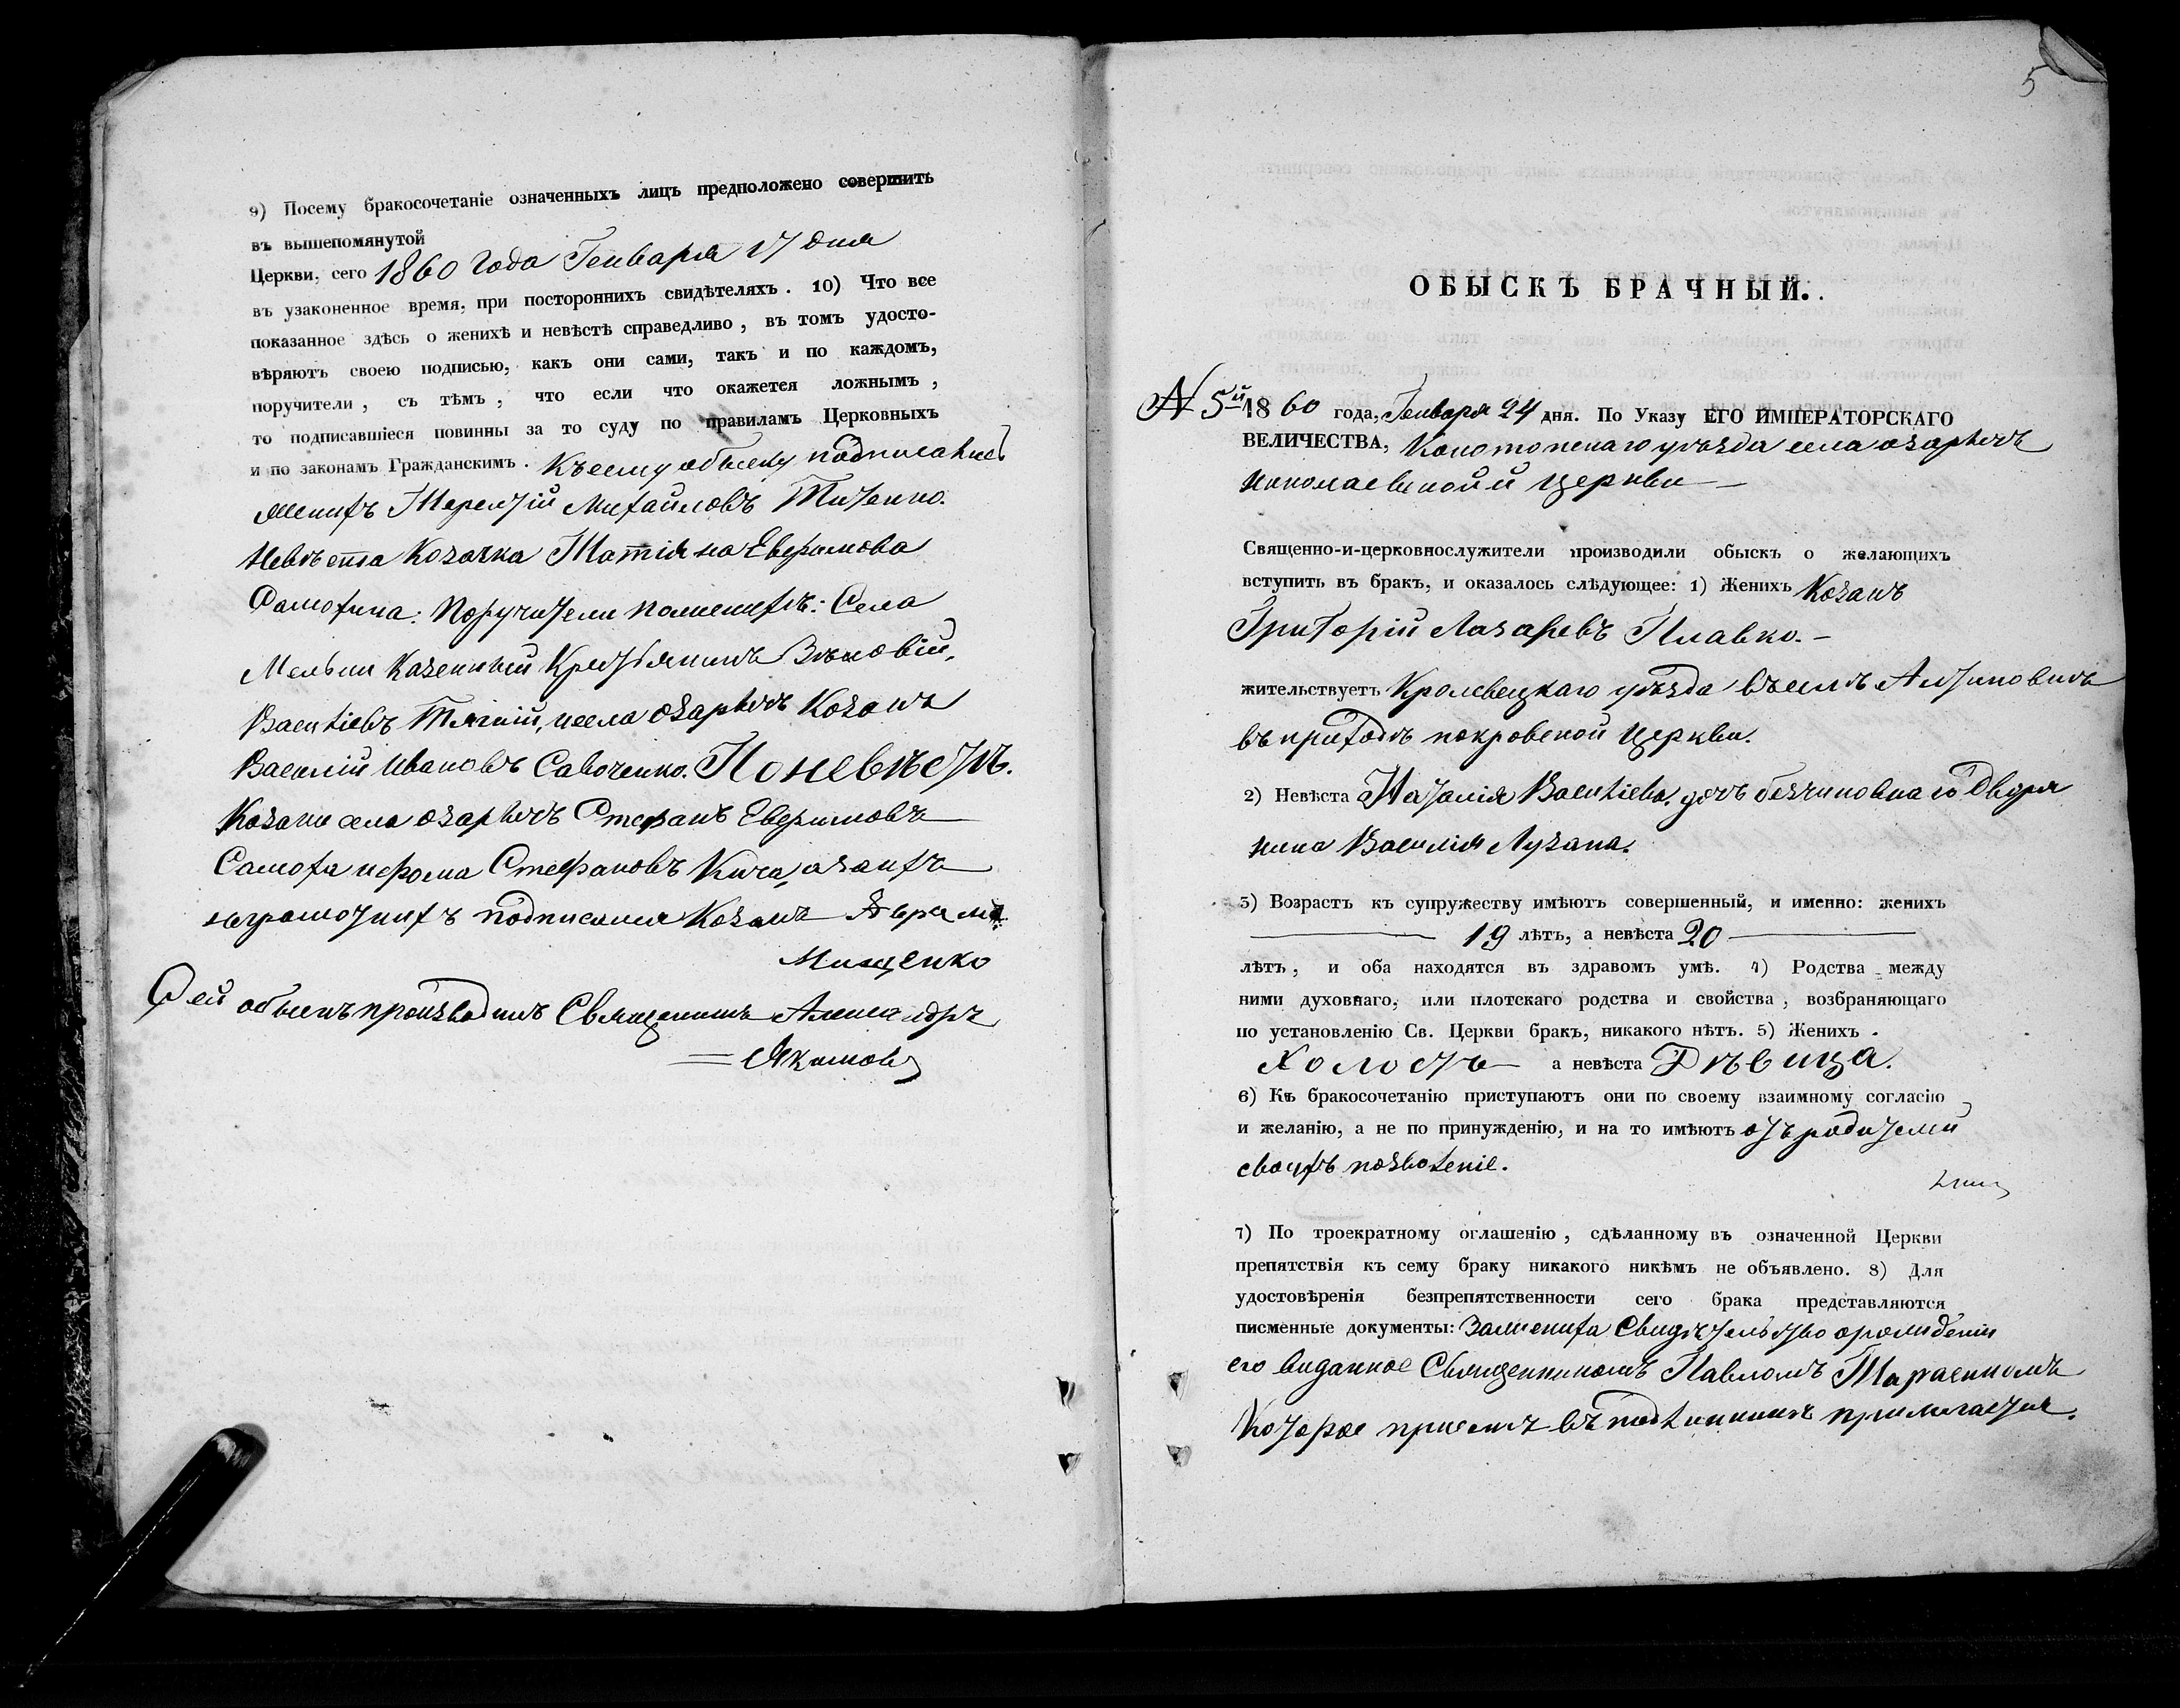 9) Посему бракосочетаніе означенныхъ лицъ предположено совершить
въ вышепомянутой
Церкви, сего 1860 года Генваря 17 дня
въ узаконенное время, при постороннихъ свидѣтеляхъ. 10) Что все
показанное здѣсь о женихѣ и невѣстѣ справедливо, въ томъ удосто-
вѣряютъ своею подписью, какъ они сами, такъ и по каждомъ,
поручители, съ тѣмъ, что если что окажется ложнымъ,
то подписавшіеся повинны за то суду по правиламъ Церковныхъ
и по законамъ Гражданскимъ. Къ сему обыску подписались
Женихъ Терентій Михайловъ Титенко.
Невѣста Козачка Татіяна Евфимова
Самохина: Поручители по женихѣ: Села
Мельни Казенный Крестьянинъ
Васильевъ Тягній, и села Озаричъ Козакъ
Василій Ивановъ Савоченко. По невѣстѣ.
Козаки села Озаричъ Стефанъ Евфимовъ
Самоха и Фома Стефановъ Кича, а за ихъ
неграмотныхъ подписался Козакъ
Мищенко
Сей обыскъ производилъ Священникъ Александръ
Якимовъ
5
ОБЫСКЪ БРАЧНЫЙ.
N 5й 1860 года, Генваря 24 дня. По Указу ЕГО ИМПЕРАТОРСКАГО
ВЕЛИЧЕСТВА, Конотопскаго уѣзда села Озаричъ
Николаевской церкви
Священно-и-церковнослужители производили обыскъ о желающихъ
вступить въ бракъ, и оказалось слѣдующее: 1) Женихъ Козакъ
Григорій Лазаревъ Плавко.
жительствуетъ Кролевецкаго уѣзда въ селѣ Алтиновкѣ
въ приходѣ покровской Церкви.
2) Невѣста Наталія Васильева, дочь безчиновнаго Дворя
нина Василія Лузана.
3) Возрастъ къ супружеству имѣютъ совершенный, и именно: женихъ
19 лѣтъ, а невѣста 20
лѣтъ, и оба находятся въ здравомъ умѣ. 4) Родства между
ними духовнаго, или плотскаго родства и свойства, возбраняющаго
по установленію Св. Церкви бракъ, никакого нѣтъ. 5) Женихъ
Холостъ а невѣста Дѣвица.
6) Къ бракосочетанію приступаютъ они по своему взаимному согласію
и желанію, а не по принужденію, и на то имѣютъ отъ родителей
своихъ позволеніе.
7) По троекратному оглашенію, сдѣланному въ означенной Церкви
препятствія къ сему браку никакого никѣмъ не объявлено. 8) Для
удостовѣренія безпрепятственности сего брака представляются
писменные документы: За жениха Свидѣтельство о рожденіи
его виданное Священникомъ Павломъ Тарасикомъ
Которое при семъ въ подлинникѣ прилагается.